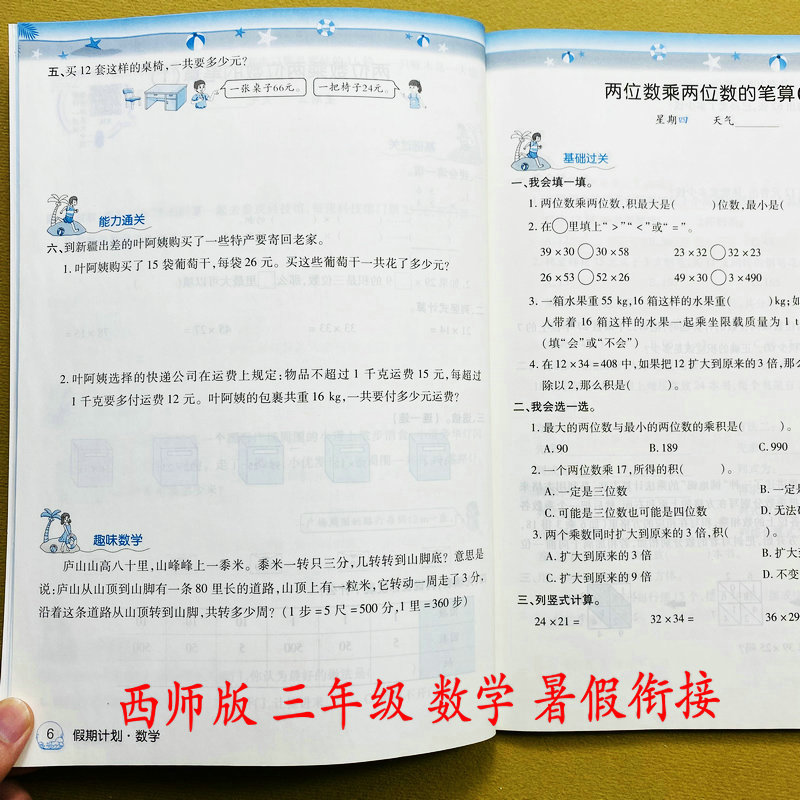 五、买 12 套这样的桌椅,一共要多少元?
一张桌子66元。 一把椅子24元。
能力通关
六、到新疆出差的叶阿姨购买了一些特产要寄回老家。
1. 叶阿姨购买了 15 袋葡萄干,每袋 26 元。买这些葡萄干一共花了多少元?
2. 叶阿姨选择的快递公司在运费上规定:物品不超过 1 千克运费 15 元,每超过
1 千克要多付运费 12 元。叶阿姨的包裹共重 16 kg,一共要付多少元运费?
趣味数学
庐山山高八十里,山峰峰上一黍米。黍米一转只三分,几转转到山脚底?意思是
说:庐山从山顶到山脚有一条 80 里长的道路,山顶上有一粒米,它转动一周走了 3 分,
沿着这条道路从山顶转到山脚,共转多少周?(1 步 = 5 尺 = 500 分,1 里 = 360 步)
6 假期计划·数学
两位数乘两位数的笔算(
星期四 天气
基础过关
一、我会填一填。
1. 两位数乘两位数,积最大是( )位数,最小是(
2. 在○里填上“>”“<”或“=”。
39×30○30×58 23×32○32×23
26×53○52×26 49×30○3×490
3. 一箱水果重 55 kg,16 箱这样的水果重( )kg;如
人带着 16 箱这样的水果一起乘坐限载质量为 1 t
(填“会”或“不会”)
4. 在 12×34=408 中,如果把 12 扩大到原来的 3 倍,那么
除以 2,那么积是( )。
二、我会选一选。
1. 最大的两位数与最小的两位数的乘积是( )。
A. 90 B. 189 C. 990
2. 一个两位数乘 17,所得的积( )。
A. 一定是三位数 B. 一定
C. 可能是三位数也可能是四位数 D. 无法
3. 两个乘数同时扩大到原来的 3 倍,积( )。
A. 扩大到原来的 3 倍 B. 扩大
C. 扩大到原来的 9 倍 D. 不变
三、列竖式计算。
24×21= 32×34= 36×29
西师版 三年级 数学 暑假衔接